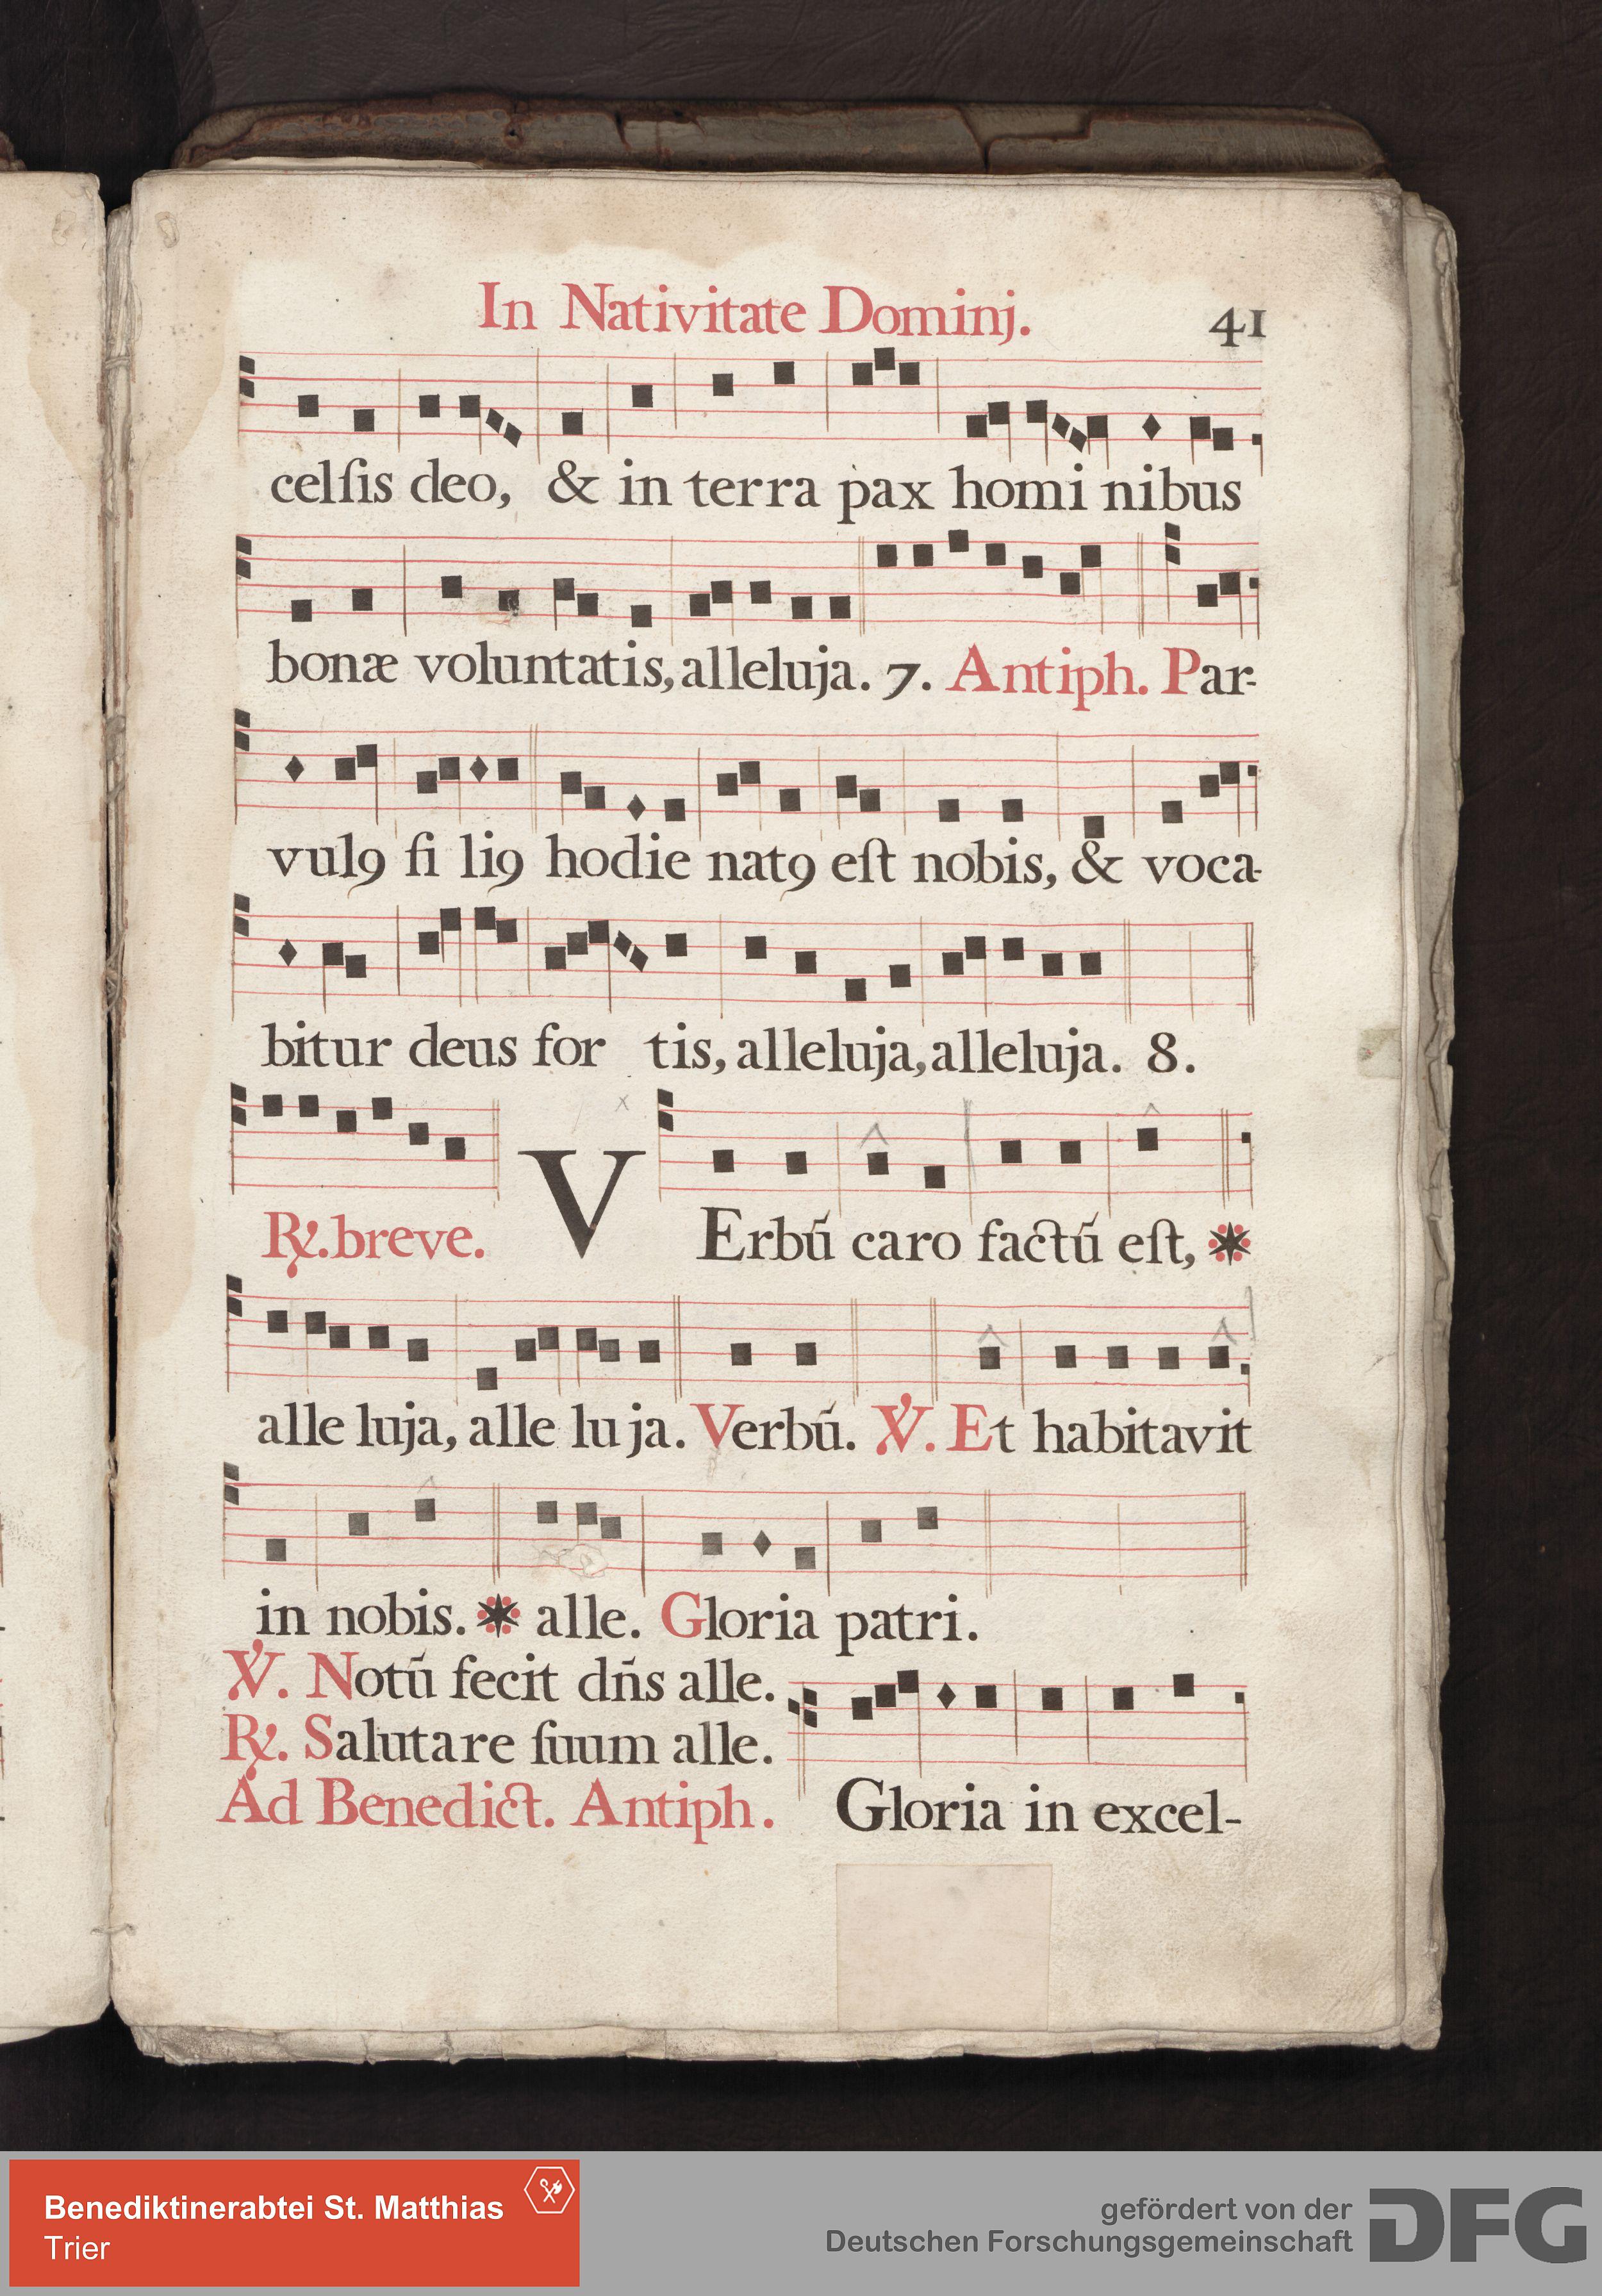 In Nativitate Dominj. 41
celſis deo, & in terra pax homi nibus
bonæ voluntatis, alleluja. 7. Antiph. Par-
vulꝯ fi liꝯ hodie natꝯ eſt nobis, & voca-
bitur deus for tis, alleluja, alleluja. 8.
℟. breve. V Erbū caro factū eſt, *
alle luja, alle lu ja. Verbū. ℣. Et habitavit
in nobis. * alle. Gloria patri.
℣. Notū fecit dn̄s alle.
℟. Salutare ſuum alle.
Ad Benedict. Antiph. Gloria in excel-
Benediktinerabtei St. Matthias
Trier
gefördert von der
Deutschen Forschungsgemeinschaft
DFG